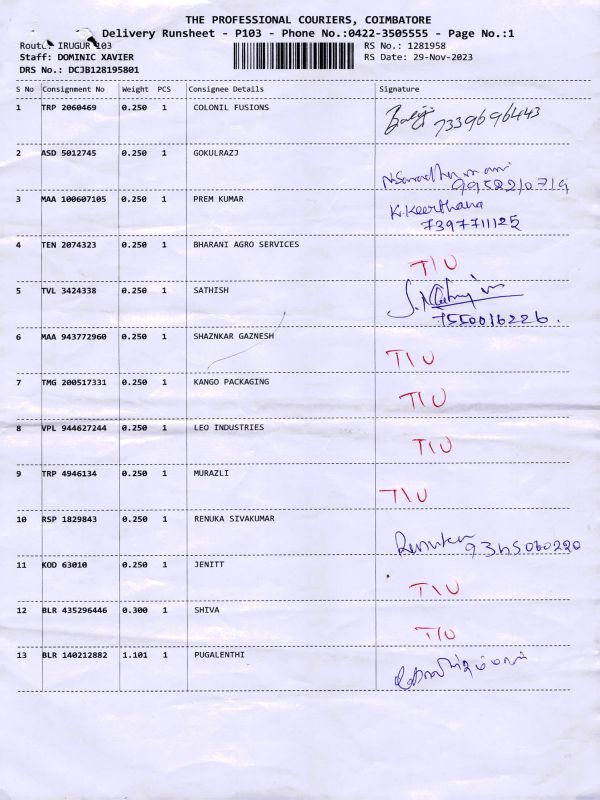 THE PROFESSIONAL COURIERS, COIMBATORE
Delivery Runsheet - P103 - Phone No.:0422-3505555 - Page No.:1
Route: IRUGUR 103
RS No.: 1281958
Staff: DOMINIC XAVIER
RS Date: 29-Nov-2023
DRS No.: DCJB128195801
S No Consignment No Weight PCS Consignee Details Signature
1 TRP 2060469 0.250 1 COLONIL FUSIONS
7339696443
2 ASD 5012745 0.250 1 GOKULRAZJ
9952210719
3 MAA 100607105 0.250 1 PREM KUMAR K. Keerthana
7397711125
4 TEN 2074323 0.250 1 BHARANI AGRO SERVICES
T/U
5 TVL 3424338 0.250 1 SATHISH
7550016226.
6 MAA 943772960 0.250 1 SHAZNKAR GAZNESH
T\U
7 TMG 200517331 0.250 1 KANGO PACKAGING
T\U
8 VPL 944627244 0.250 1 LEO INDUSTRIES
T\U
9 TRP 4946134 0.250 1 MURAZLI
T\U
10 RSP 1829843 0.250 1 RENUKA SIVAKUMAR
Renuka 9365060220
11 KOD 63010 0.250 1 JENITT
T\U
12 BLR 435296446 0.300 1 SHIVA
T/U
13 BLR 140212882 1.101 1 PUGALENTHI